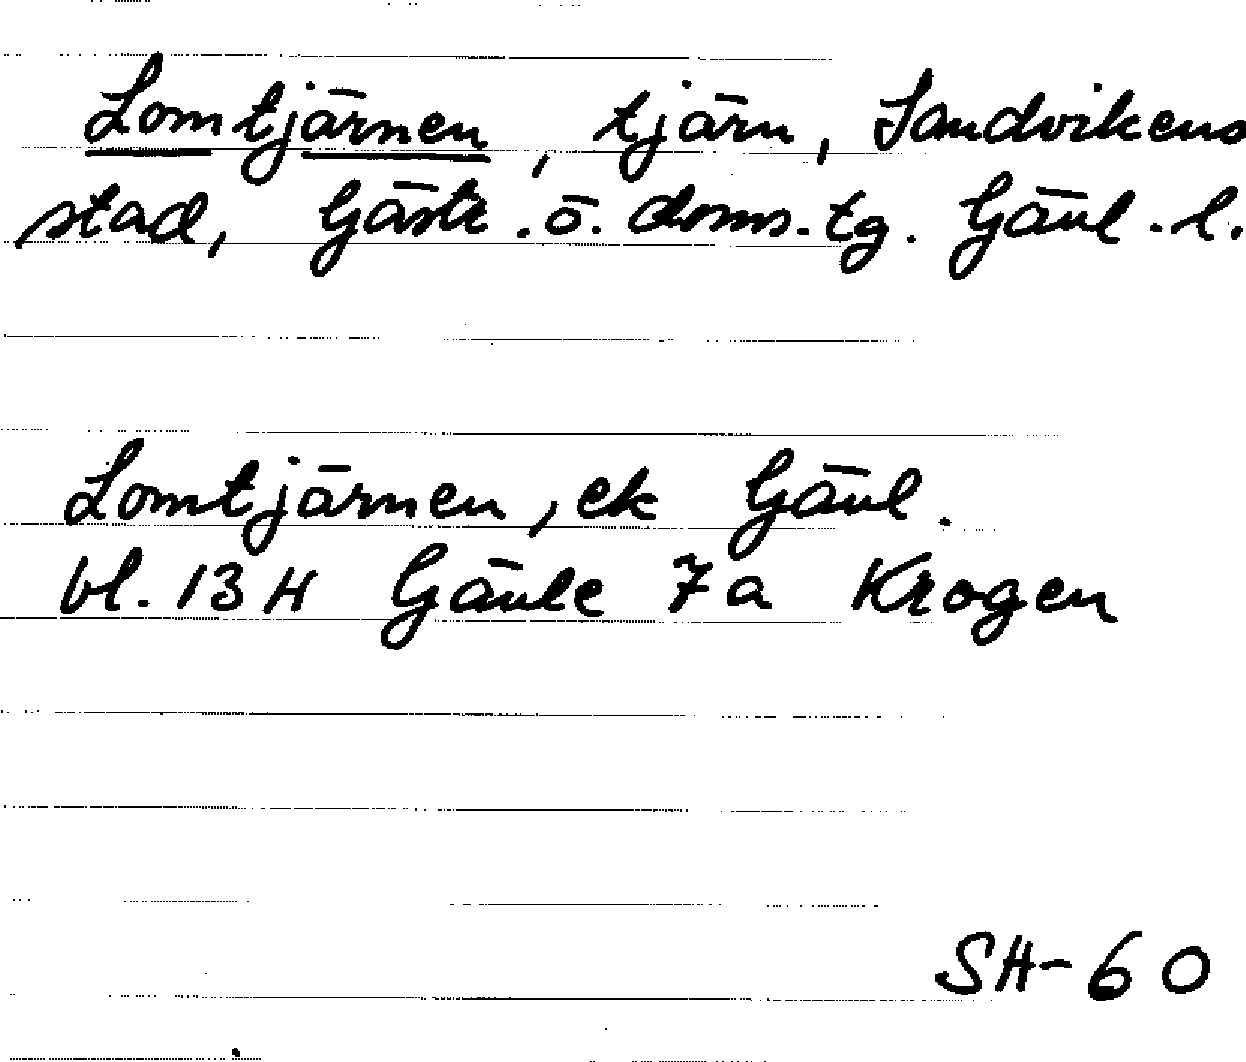 Lomtjärnen, tjärn, Sandvikens
stad, Gästr. ö. doms. tg. Gävl. l.
Lomtjärnen, ek Gävl.
bl. 13 H Gävle 7 a Krogen
SH-60